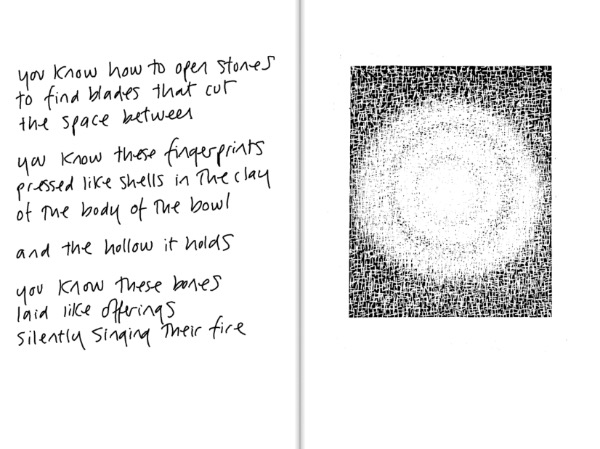 you know how to open stones
to find blades that cut
the space between
you know these fingerprints
pressed like shells in the clay
of the body of the bowl
and the hollow it holds
you know these bones
laid like offerings
silently singing their fire